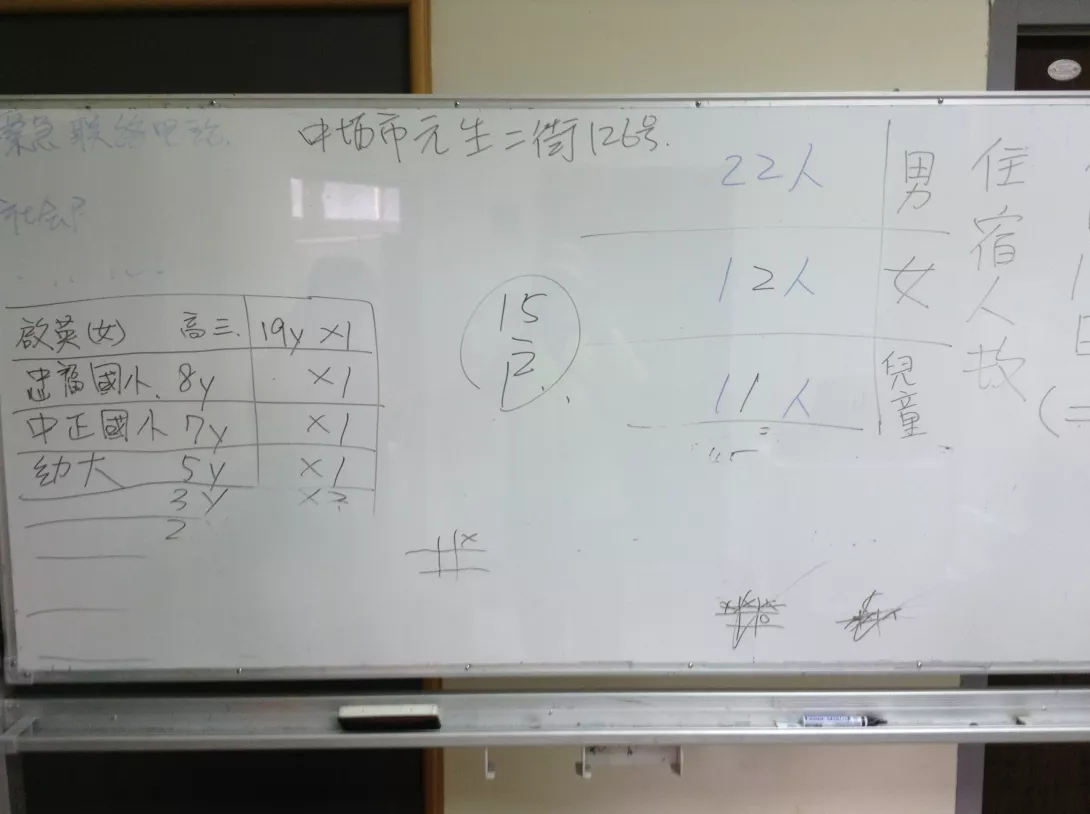 緊急联络电话
中坜市元生二街126号.
社会
住宿人数
男 22人
女 12人
兒童 11人
啟英(女) 高三. 19y ×1
忠福國小. 8y ×1
中正國小 7y ×1
幼大 5y ×1
3y ×2
2
15